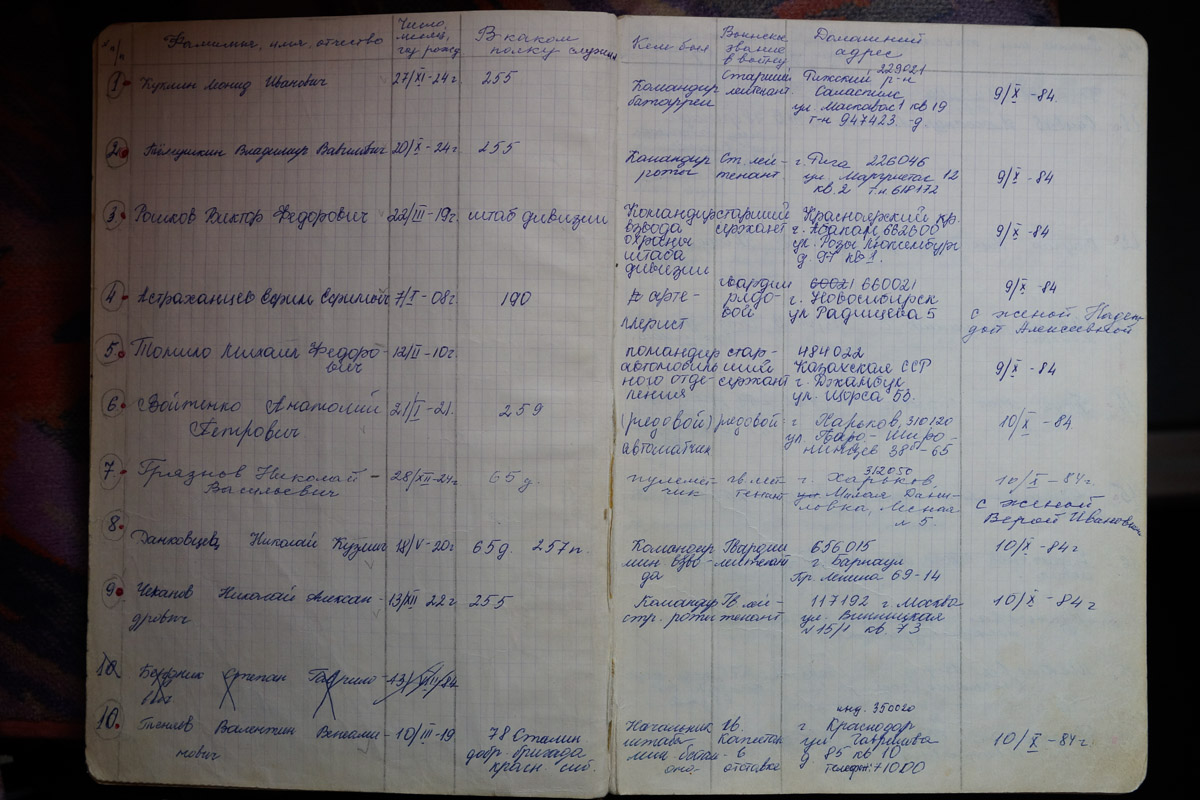 № п/п Фамилия, имя, отчество Число, месяц, год рожд. В каком полку служил Кем был Воинское звание в войну Домашний адрес
1. Куклин Леонид Иванович 27/XI-24г. 255 Командир батарреи Старший лейтенант. Рижский р-н 229021
Саласпилс
ул. Маскавас 1 кв 19
т-н 947423 -д
9/X -84
2. Владимир 20/X-24г 255 Командир роты Ст. лейтенант г. Рига 226046
ул. Маргриетас 12
кв. 2 т.н 618172
9/X -84
3. Виктор Федорович 22/III-19г. штаб дивизии
Командир
взвода
охраны
штаба
дивизии
старший
сержант
Красноярский кр.
г. Абакан 662600
ул. Розы Люксембург
д. 97 кв 1.
9/X -84
4. Астраханцев 7/I-08г 190
660021
г. Новосибирск
ул Радищева 5
9/X -84
с женой Надеж-
дой Алексеевной
5. Михаил Федоро-
вич
12/II-10г.
командир
автомобиль
ного отде-
ления
стар-
ший
сержант
484022
Казахская ССР
г. Джамбул
ул. Щорса 53.
9/X -84
6. Войтенко Анатолий
Петрович
21/I-21. 259
(рядовой)
автоматчик
рядовой
г Харьков, 310120
ул.
38 -65
10/X -84
7. Грязнов Николай
Васильевич
28/XII-24г 65 д.
пулемёт-
чик
гв. лей-
тенант
г. Харьков, 312050
Малая Дани-
ловка, Лесная
5.
10/X -84г.
с женой
Верой Ивановной
8. Данковцев Николай Кузмич 18/V-20г 65д. 257п.
Командир
мин взво-
да
Гвардии
лейтенант
656015
г. Барнаул
Пр. Ленина 69-14
10/X -84г
9. Чеканов Николай Алексан-
дрович
13/XII 22г 255
Командир
стр. роты
Гв. лей-
тенант
117192 г Москва
ул. Винницкая
№15/1 кв. 73
10/X -84г
10 Степан Гаврило-
вич
10. Валентин Вениами-
нович
10/III-19
78 Сталин
добр бригада
красн сиб.
Начальник
штаба
мин баталь-
она-
Гв.
Капитан
в
отставке
инд. 350020
г Краснодар
ул. Гаврилова
д 85 кв 10
10/X -84г.